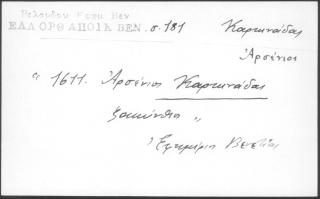 Βελούδου Εφημ Βεν
ΕΛΛ ΟΡΘ ΑΠΟΙΚ ΒΕΝ. σ. 181
Καρτινάδας
Ἀρσένιος
"1611. Ἀρσένιος Καρτινάδας
Ζακύνθιος"
Ἐφημέριος Βενετίας